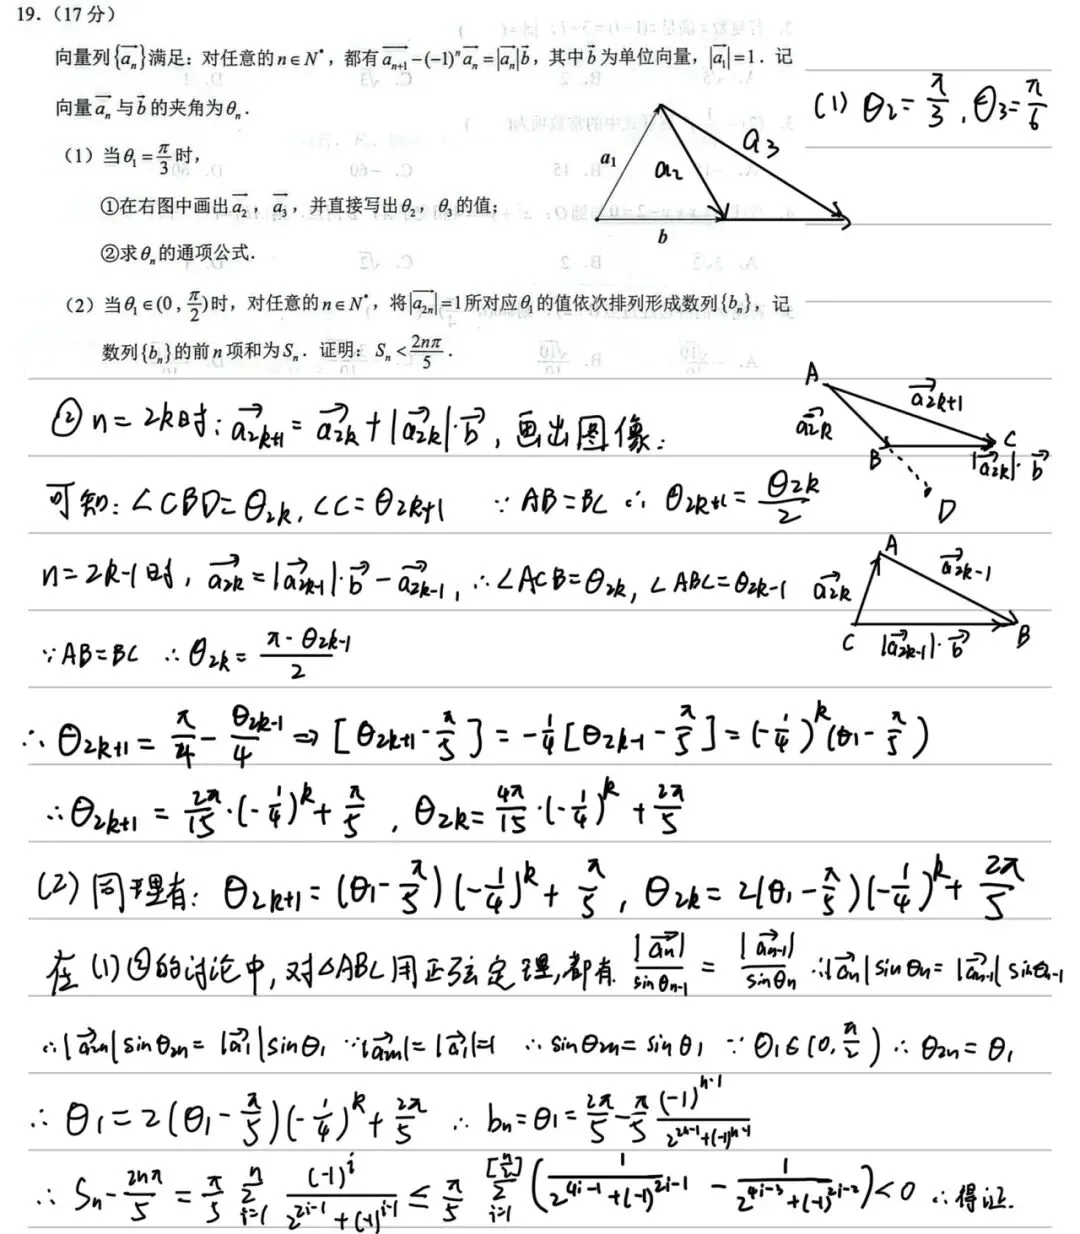 19.（17分）
向量列{a_n→}满足：对任意的n∈N*，都有a_{n+1}→-(-1)^n a_n→=|a_n→|b→，其中b→为单位向量，|a_1→|=1．记
向量a_n→与b→的夹角为θ_n．
（1）当θ_1=π/3时，
①在右图中画出a_2→，a_3→，并直接写出θ_2，θ_3的值；
②求θ_n的通项公式．
（2）当θ_1∈(0，π/2)时，对任意的n∈N*，将|a_{2n}→|=1所对应θ_1的值依次排列形成数列{b_n}，记
数列{b_n}的前n项和为S_n．证明：S_n<2nπ/5．
a_1
a_2
a_3
b
(1) θ_2=π/3，θ_3=π/6
② n=2k时: a_{2k+1}→=a_{2k}→+|a_{2k}→|·b→，画出图像:
A
a_{2k+1}→
a_{2k}→
B
C
|a_{2k}→|·b→
D
可知: ∠CBD=θ_{2k}, ∠C=θ_{2k+1} ∵AB=BC ∴θ_{2k+1}=θ_{2k}/2
n=2k-1时，a_{2k}→=|a_{2k-1}→|·b→-a_{2k-1}→, ∴∠ACB=θ_{2k}, ∠ABC=θ_{2k-1}
A
a_{2k-1}→
a_{2k}→
C
|a_{2k-1}→|·b→
B
∵AB=BC ∴θ_{2k}=(π-θ_{2k-1})/2
∴θ_{2k+1}=π/4-θ_{2k-1}/4⇒[θ_{2k+1}-π/5]=-1/4[θ_{2k-1}-π/5]=(-1/4)^k(θ_1-π/5)
∴θ_{2k+1}=2π/15·(-1/4)^k+π/5，θ_{2k}=4π/15·(-1/4)^k+2π/5
(2) 同理有: θ_{2k+1}=(θ_1-π/5)(-1/4)^k+π/5，θ_{2k}=2(θ_1-π/5)(-1/4)^k+2π/5
在(1)②的讨论中,对△ABC用正弦定理,都有 |a_n→|/sinθ_{n-1}=|a_{n-1}→|/sinθ_n ∴|a_n→|sinθ_n=|a_{n-1}→|sinθ_{n-1}
∴|a_{2n}→|sinθ_{2n}=|a_1→|sinθ_1 ∵|a_{2n}→|=|a_1→|=1 ∴sinθ_{2n}=sinθ_1 ∵θ_1∈(0,π/2) ∴θ_{2n}=θ_1
∴θ_1=2(θ_1-π/5)(-1/4)^k+2π/5 ∴b_n=θ_1=2π/5-π/5·(-1)^{n-1}/(2^{2n-1}+(-1)^{n-1})
∴S_n-2nπ/5=π/5 Σ_{i=1}^{n} (-1)^i/(2^{2i-1}+(-1)^{i-1})≤π/5 Σ_{i=1}^{[n/2]}(1/(2^{4i-1}+(-1)^{2i-1})-1/(2^{4i-3}+(-1)^{2i-2}))<0 ∴得证.